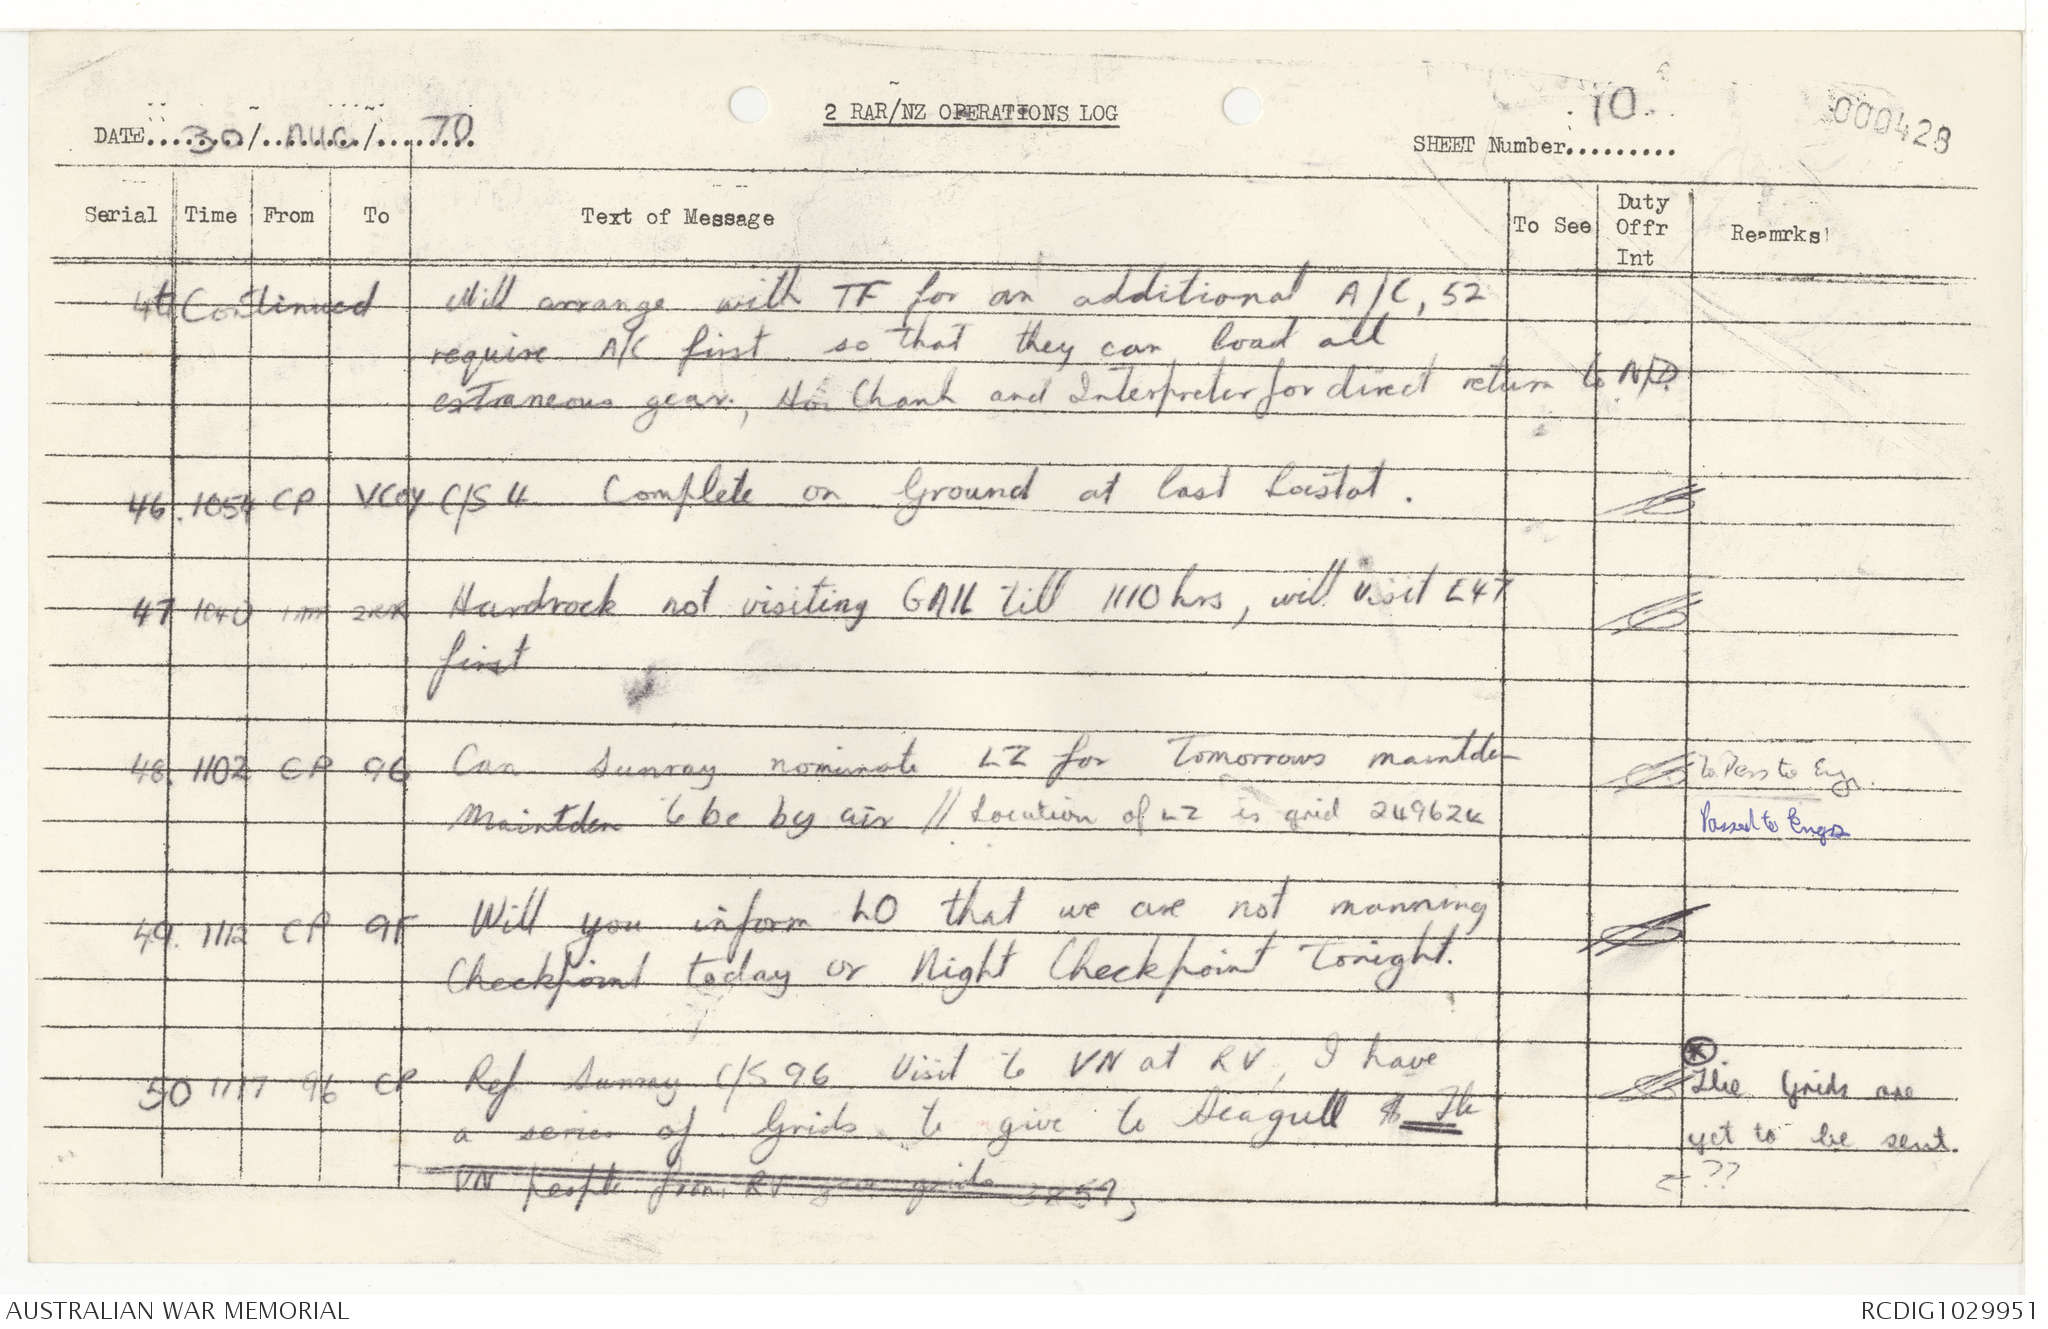 2 RAR/NZ OPERATIONS LOG
DATE 30/ AUG / 70
SHEET Number 10
000428
Serial Time From To Text of Message To See Duty Offr Int Remrks
Continued Will arrange with TF for an additional A/C, 52
require A/C first so that they can load all
extraneous gear, Hoi Chanh and Interpreter for direct return to NDP.
46. 1054 CP VCoy C/S 4 Complete on Ground at last Locstat.
47 1040 2RAR Hardrock not visiting GAIL till 1110 hrs, will visit E47
first
48. 1102 CP 96 Can Sunray nominate LZ for Tomorrows maintdem To Pass to Engr.
Maintdem to be by air // Location of LZ is grid 249624 Passed to Engrs
49. 1112 CP 9F Will you inform LO that we are not manning
Checkpoint today or Night Checkpoint Tonight.
50 1117 96 CP Ref Sunray C/S 96 Visit to VN at RV, I have The Grids are
a series of Grids to give to Seagull The yet to be sent.
VN people from RV gave grids ??
AUSTRALIAN WAR MEMORIAL RCDIG1029951